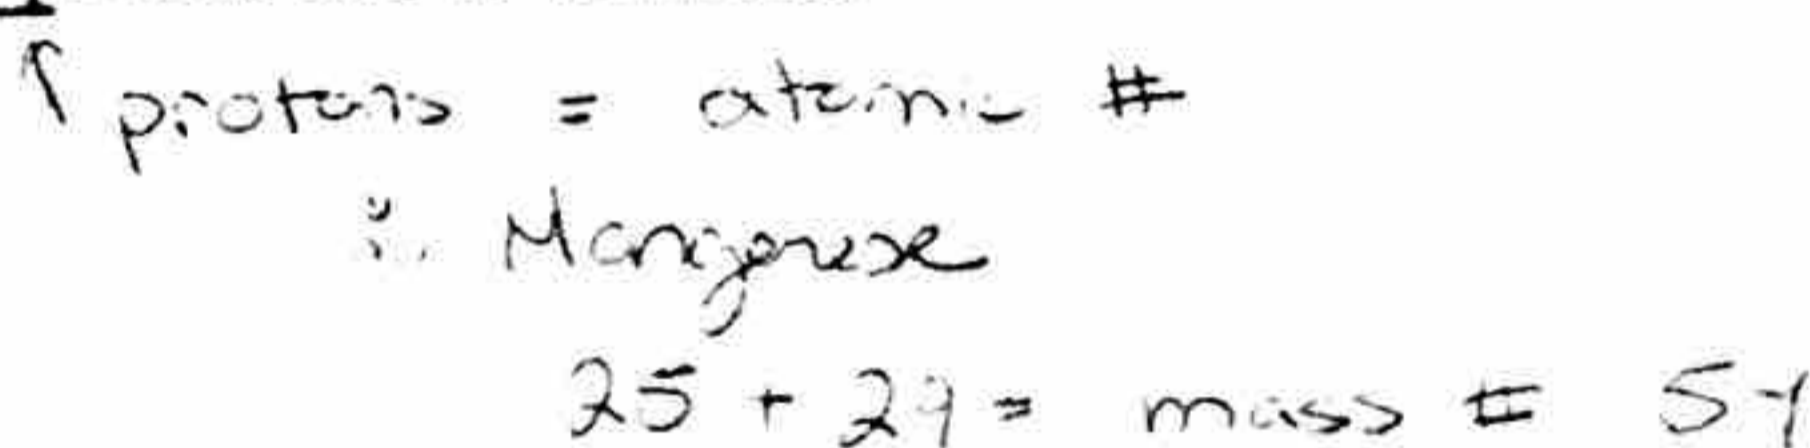 ↑ protons = atomic #
∴ Manganese
25 + 29 = mass # 54